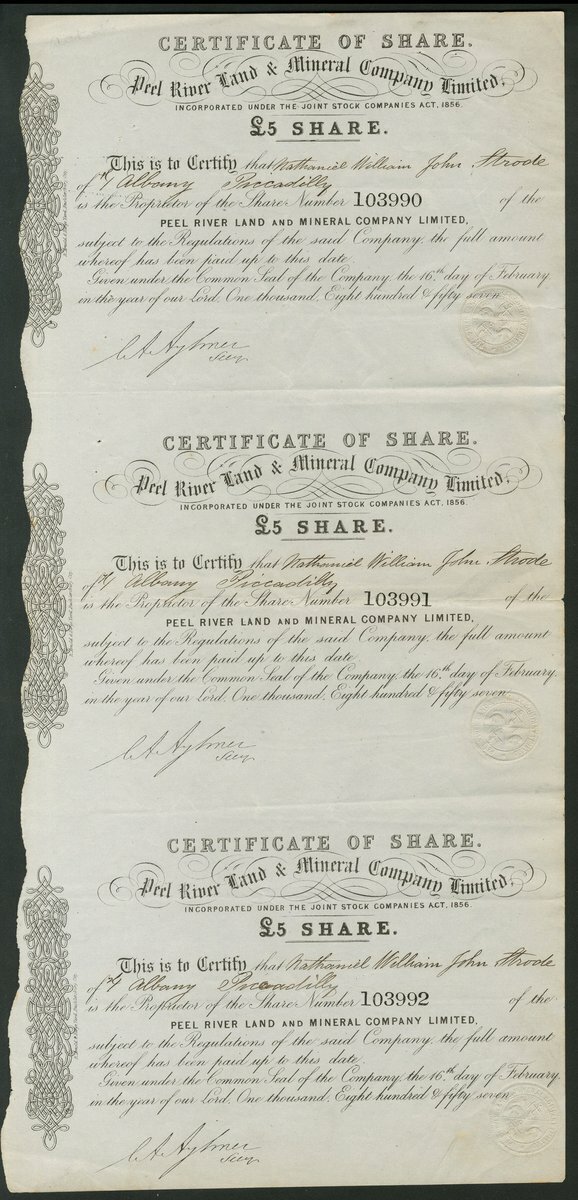 CERTIFICATE OF SHARE.
Peel River Land & Mineral Company Limited.
INCORPORATED UNDER THE JOINT STOCK COMPANIES ACT, 1856.
£5 SHARE.
This is to Certify that Nathaniel William John Strode
of Albany Piccadilly
is the Proprietor of the Share Number 103990 of the
PEEL RIVER LAND AND MINERAL COMPANY LIMITED,
subject to the Regulations of the said Company, the full amount
whereof has been paid up to this date.
Given under the Common Seal of the Company, the 16th day of February
in the year of our Lord, One thousand, Eight hundred & fifty seven
C A Aylmer
Secy.
CERTIFICATE OF SHARE.
Peel River Land & Mineral Company Limited.
INCORPORATED UNDER THE JOINT STOCK COMPANIES ACT, 1856.
£5 SHARE.
This is to Certify that Nathaniel William John Strode
of Albany Piccadilly
is the Proprietor of the Share Number 103991 of the
PEEL RIVER LAND AND MINERAL COMPANY LIMITED,
subject to the Regulations of the said Company, the full amount
whereof has been paid up to this date.
Given under the Common Seal of the Company, the 16th day of February
in the year of our Lord, One thousand, Eight hundred & fifty seven
C A Aylmer
Secy.
CERTIFICATE OF SHARE.
Peel River Land & Mineral Company Limited.
INCORPORATED UNDER THE JOINT STOCK COMPANIES ACT, 1856.
£5 SHARE.
This is to Certify that Nathaniel William John Strode
of Albany Piccadilly
is the Proprietor of the Share Number 103992 of the
PEEL RIVER LAND AND MINERAL COMPANY LIMITED,
subject to the Regulations of the said Company, the full amount
whereof has been paid up to this date.
Given under the Common Seal of the Company, the 16th day of February
in the year of our Lord, One thousand, Eight hundred & fifty seven
C A Aylmer
Secy.